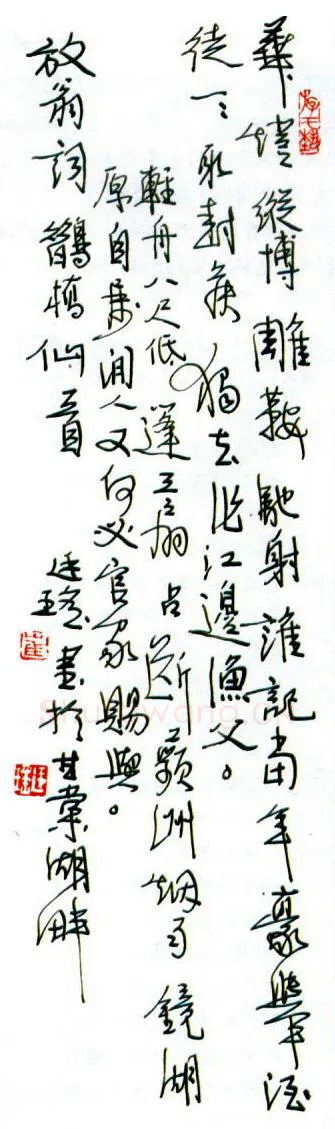 華燈縱博雕鞍馳射誰記當年豪舉酒
徒一一取封侯,獨去作江邊漁父。
輕舟八尺低篷三扇占斷蘋洲烟雨鏡湖
原自屬閒人又何必官家賜與。
放翁詞鵲橋仙一首
書於甘棠湖畔